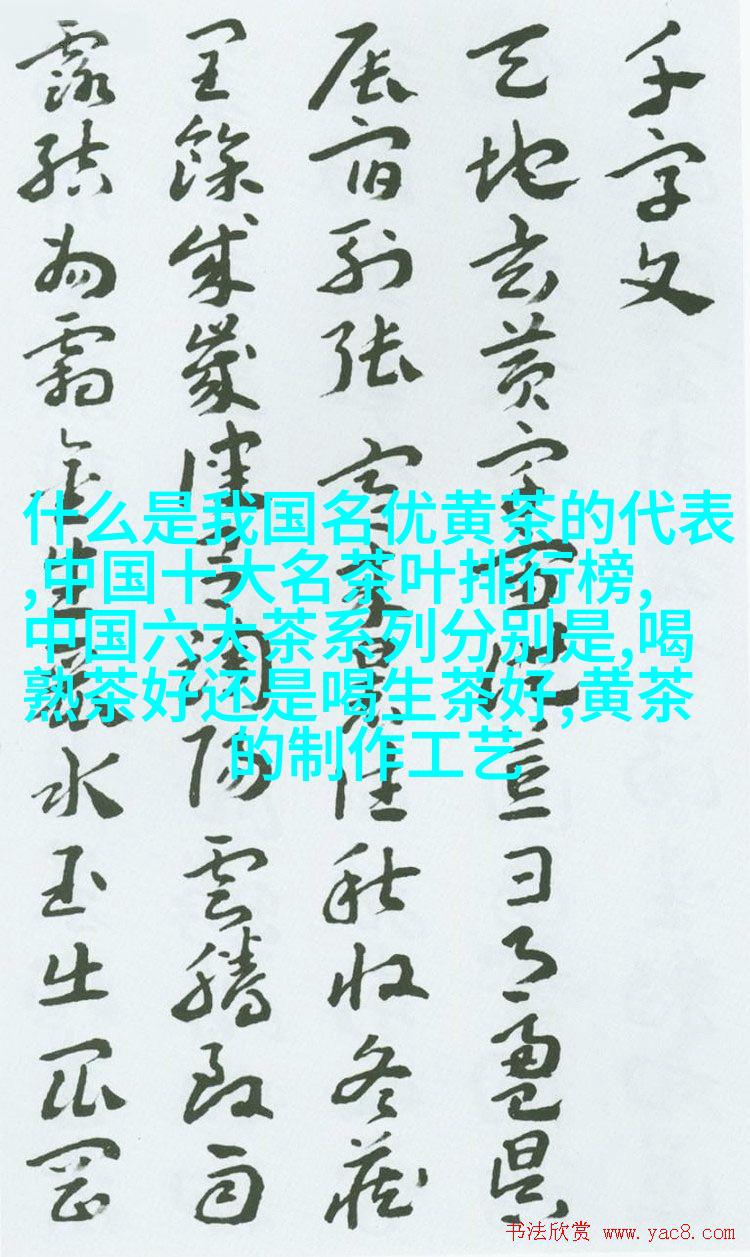 千字文
天地玄黄宇宙洪荒日月盈昃
辰宿列張寒来暑往秋收冬藏
閏餘成歲律吕調陽雲騰致雨
露結為霜金生麗水玉出崑岡
什么是我国名优黄茶的代表
,中国十大名茶叶排行榜,
中国六大茶系列分别是,喝
熟茶好还是喝生茶好,黄茶
的制作工艺
书法欣赏 www.yac8.com